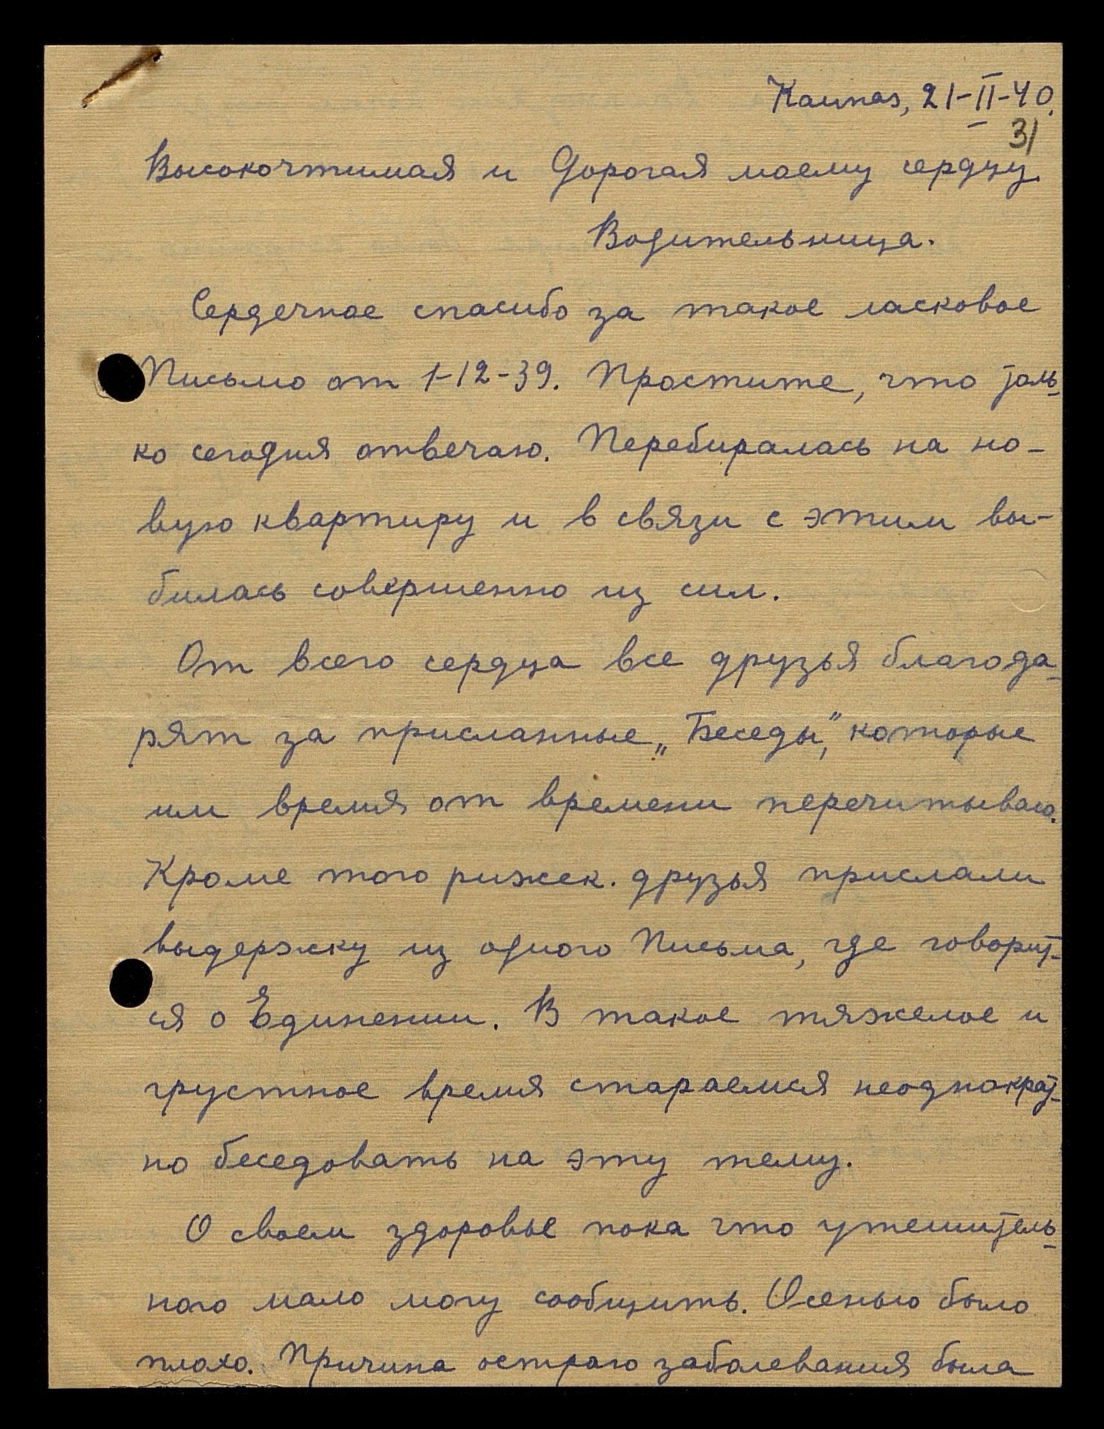 Kaunas, 21-II-40.
31
Высокочтимая и Дорогая моему сердцу
Водительница.
Сердечное спасибо за такое ласковое
Письмо от 1-12-39. Простите, что толь-
ко сегодня отвечаю. Перебиралась на но-
вую квартиру и в связи с этим вы-
билась совершенно из сил.
От всего сердца все друзья благода-
рят за присланные „Беседы", которые
им время от времени перечитываю.
Кроме того рижск. друзья прислали
выдержку из одного Письма, где говорит-
ся о Единении. В такое тяжелое и
грустное время стараемся неоднократ-
но беседовать на эту тему.
О своем здоровье пока что утешитель-
ного мало могу сообщить. Осенью было
плохо. Причина острого заболевания была